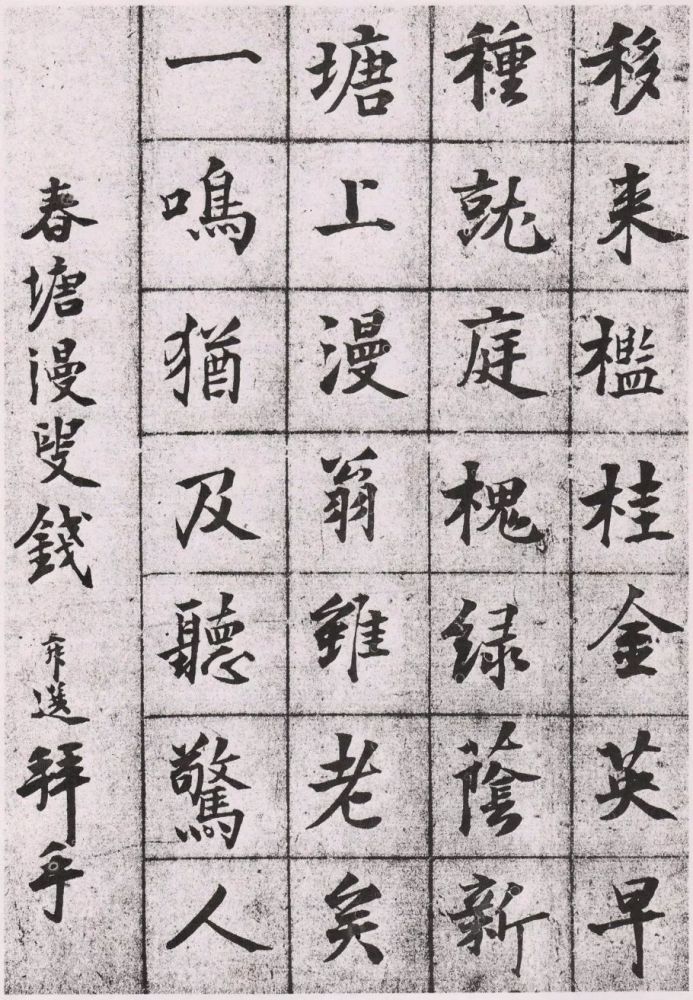 移来檻桂金英早
種就庭槐緑蔭新
塘上漫翁雖老矣
一鳴猶及聽驚人
春塘漫叟錢選拜手